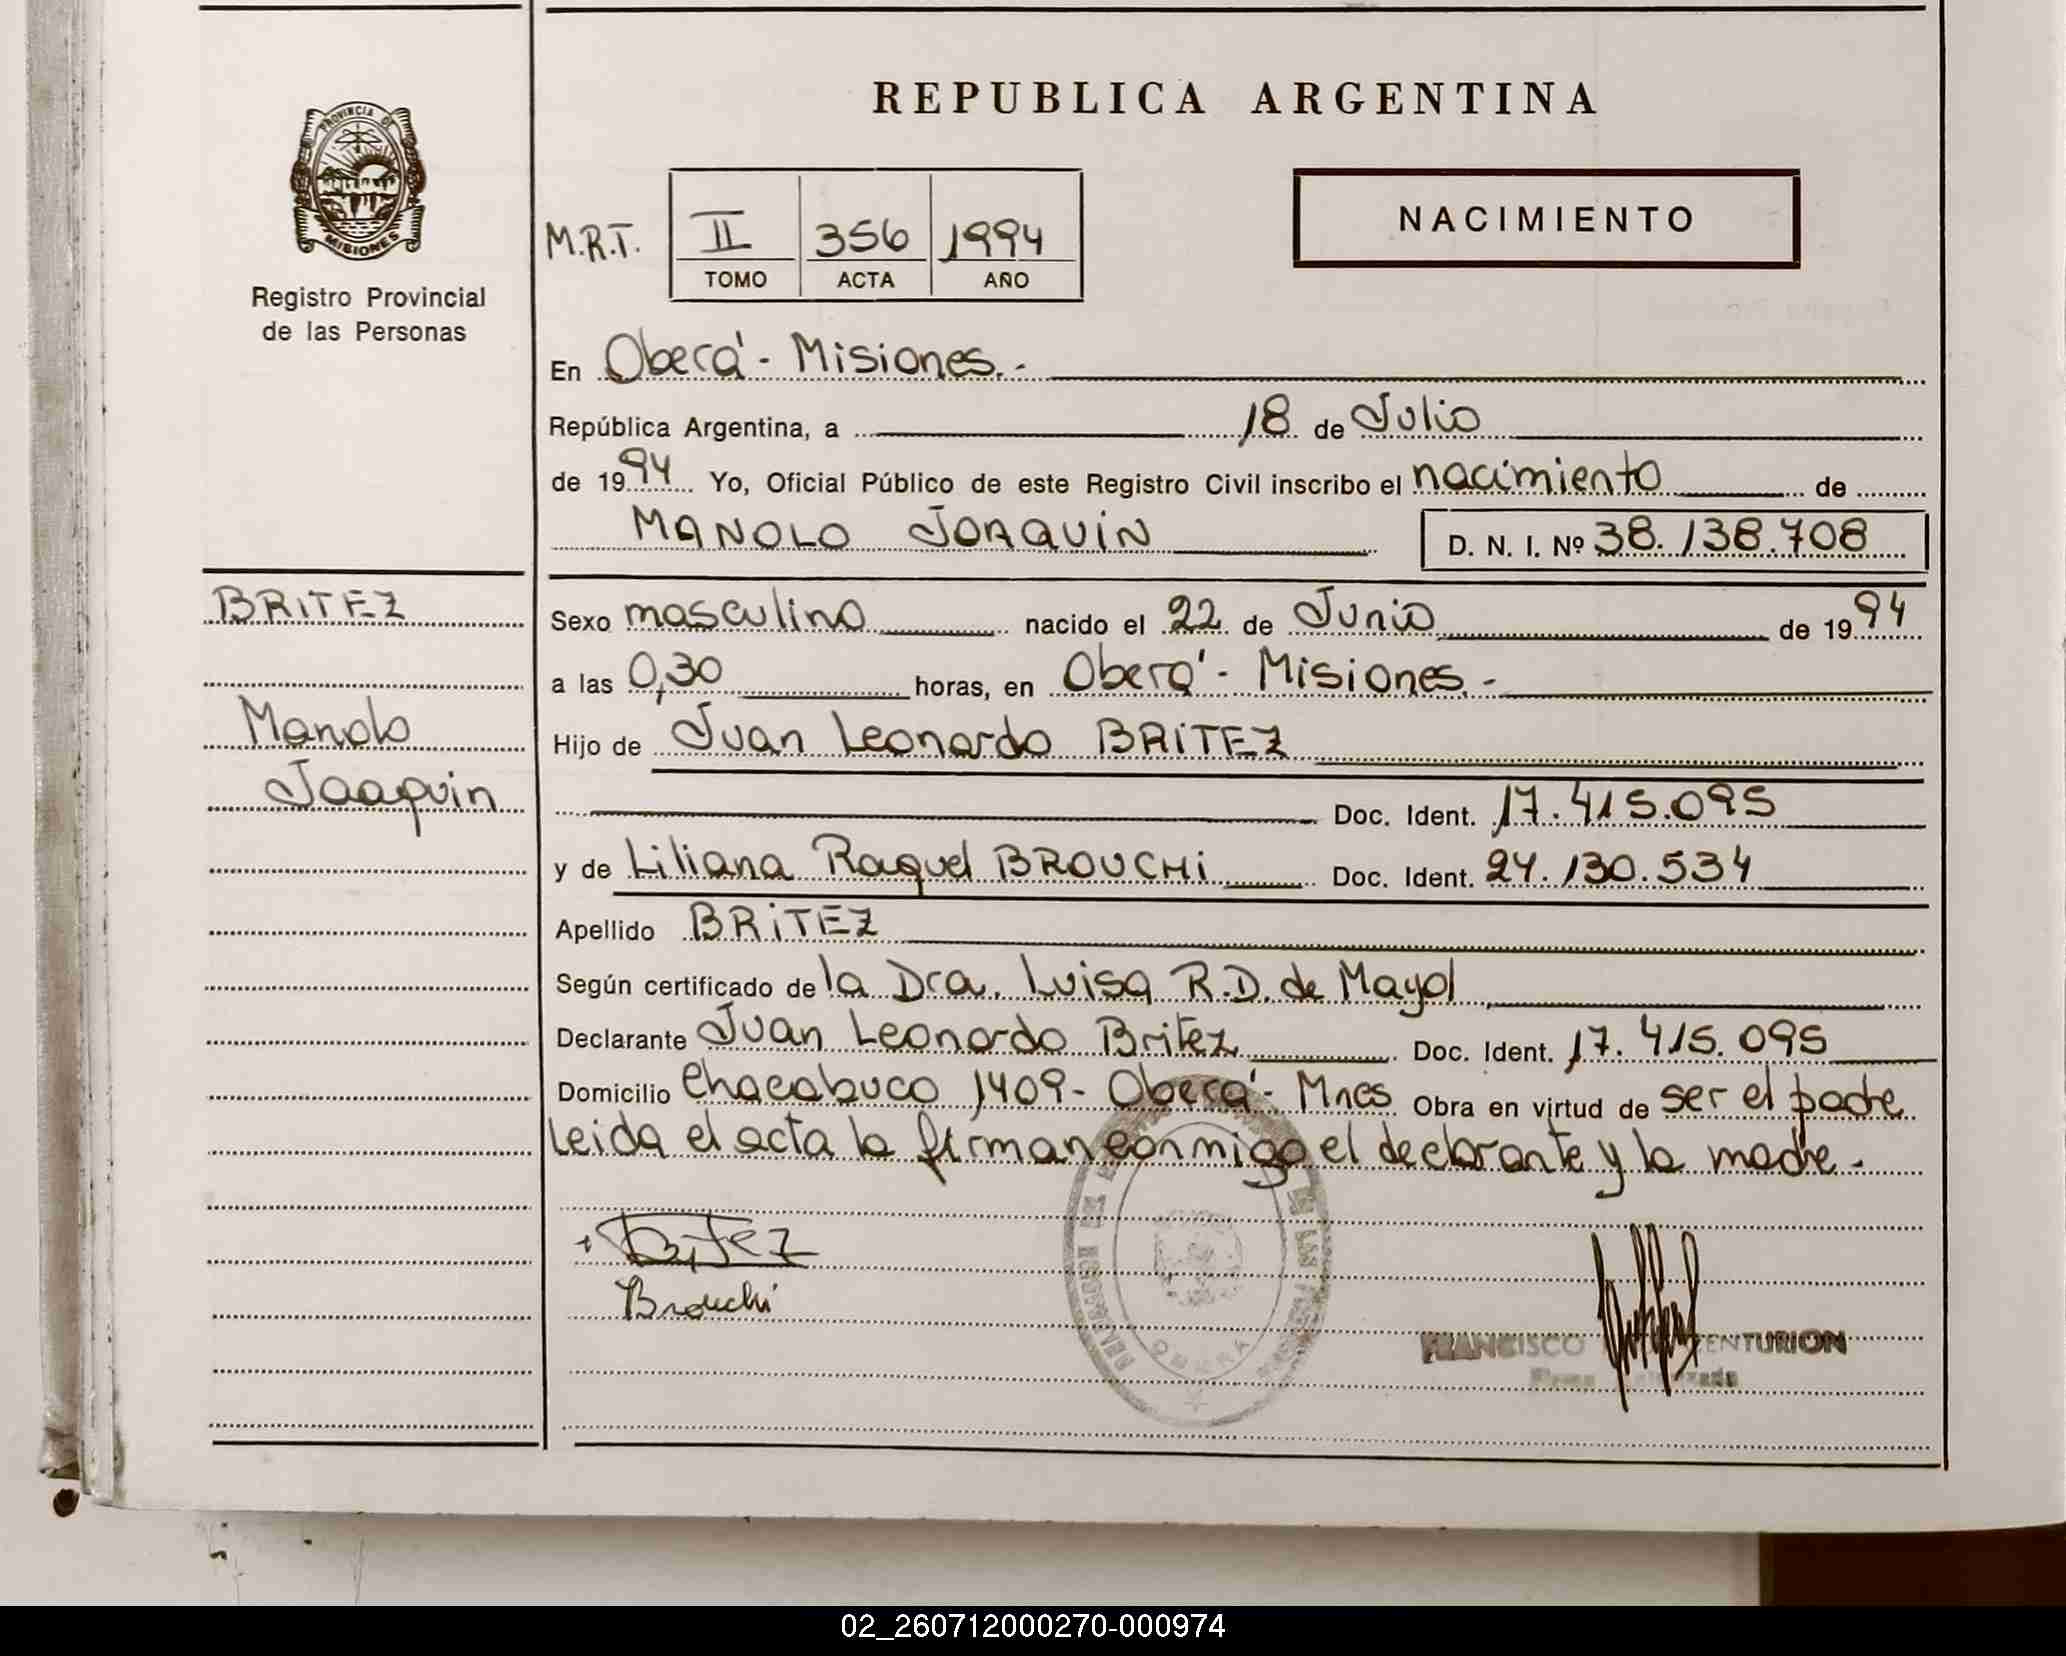 REPUBLICA ARGENTINA
PROVINCIA DE
MISIONES
Registro Provincial
de las Personas
NACIMIENTO
M.R.T. II 356 1994
TOMO ACTA AÑO
En Oberá - Misiones.-
República Argentina, a 18 de Julio
de 1994 Yo, Oficial Público de este Registro Civil inscribo el nacimiento de
MANOLO JOAQUIN D. N. I. Nº 38.138.708
BRITEZ
Manolo
Joaquin
Sexo masculino nacido el 22 de Junio de 1994
a las 0,30 horas, en Oberá - Misiones.-
Hijo de Juan Leonardo BRITEZ
Doc. Ident. 17.415.095
y de Liliana Raquel BROUCHI Doc. Ident. 24.130.534
Apellido BRITEZ
Según certificado de la Dra. Luisa R.D. de Mayol
Declarante Juan Leonardo Britez Doc. Ident. 17.415.095
Domicilio Chacabuco 1409 - Oberá - Mnes Obra en virtud de ser el padre
Leida el acta la firman conmigo el declarante y la madre.-
Britez
Brouchi
FRANCISCO CENTURION
OBERA
02_260712000270-000974